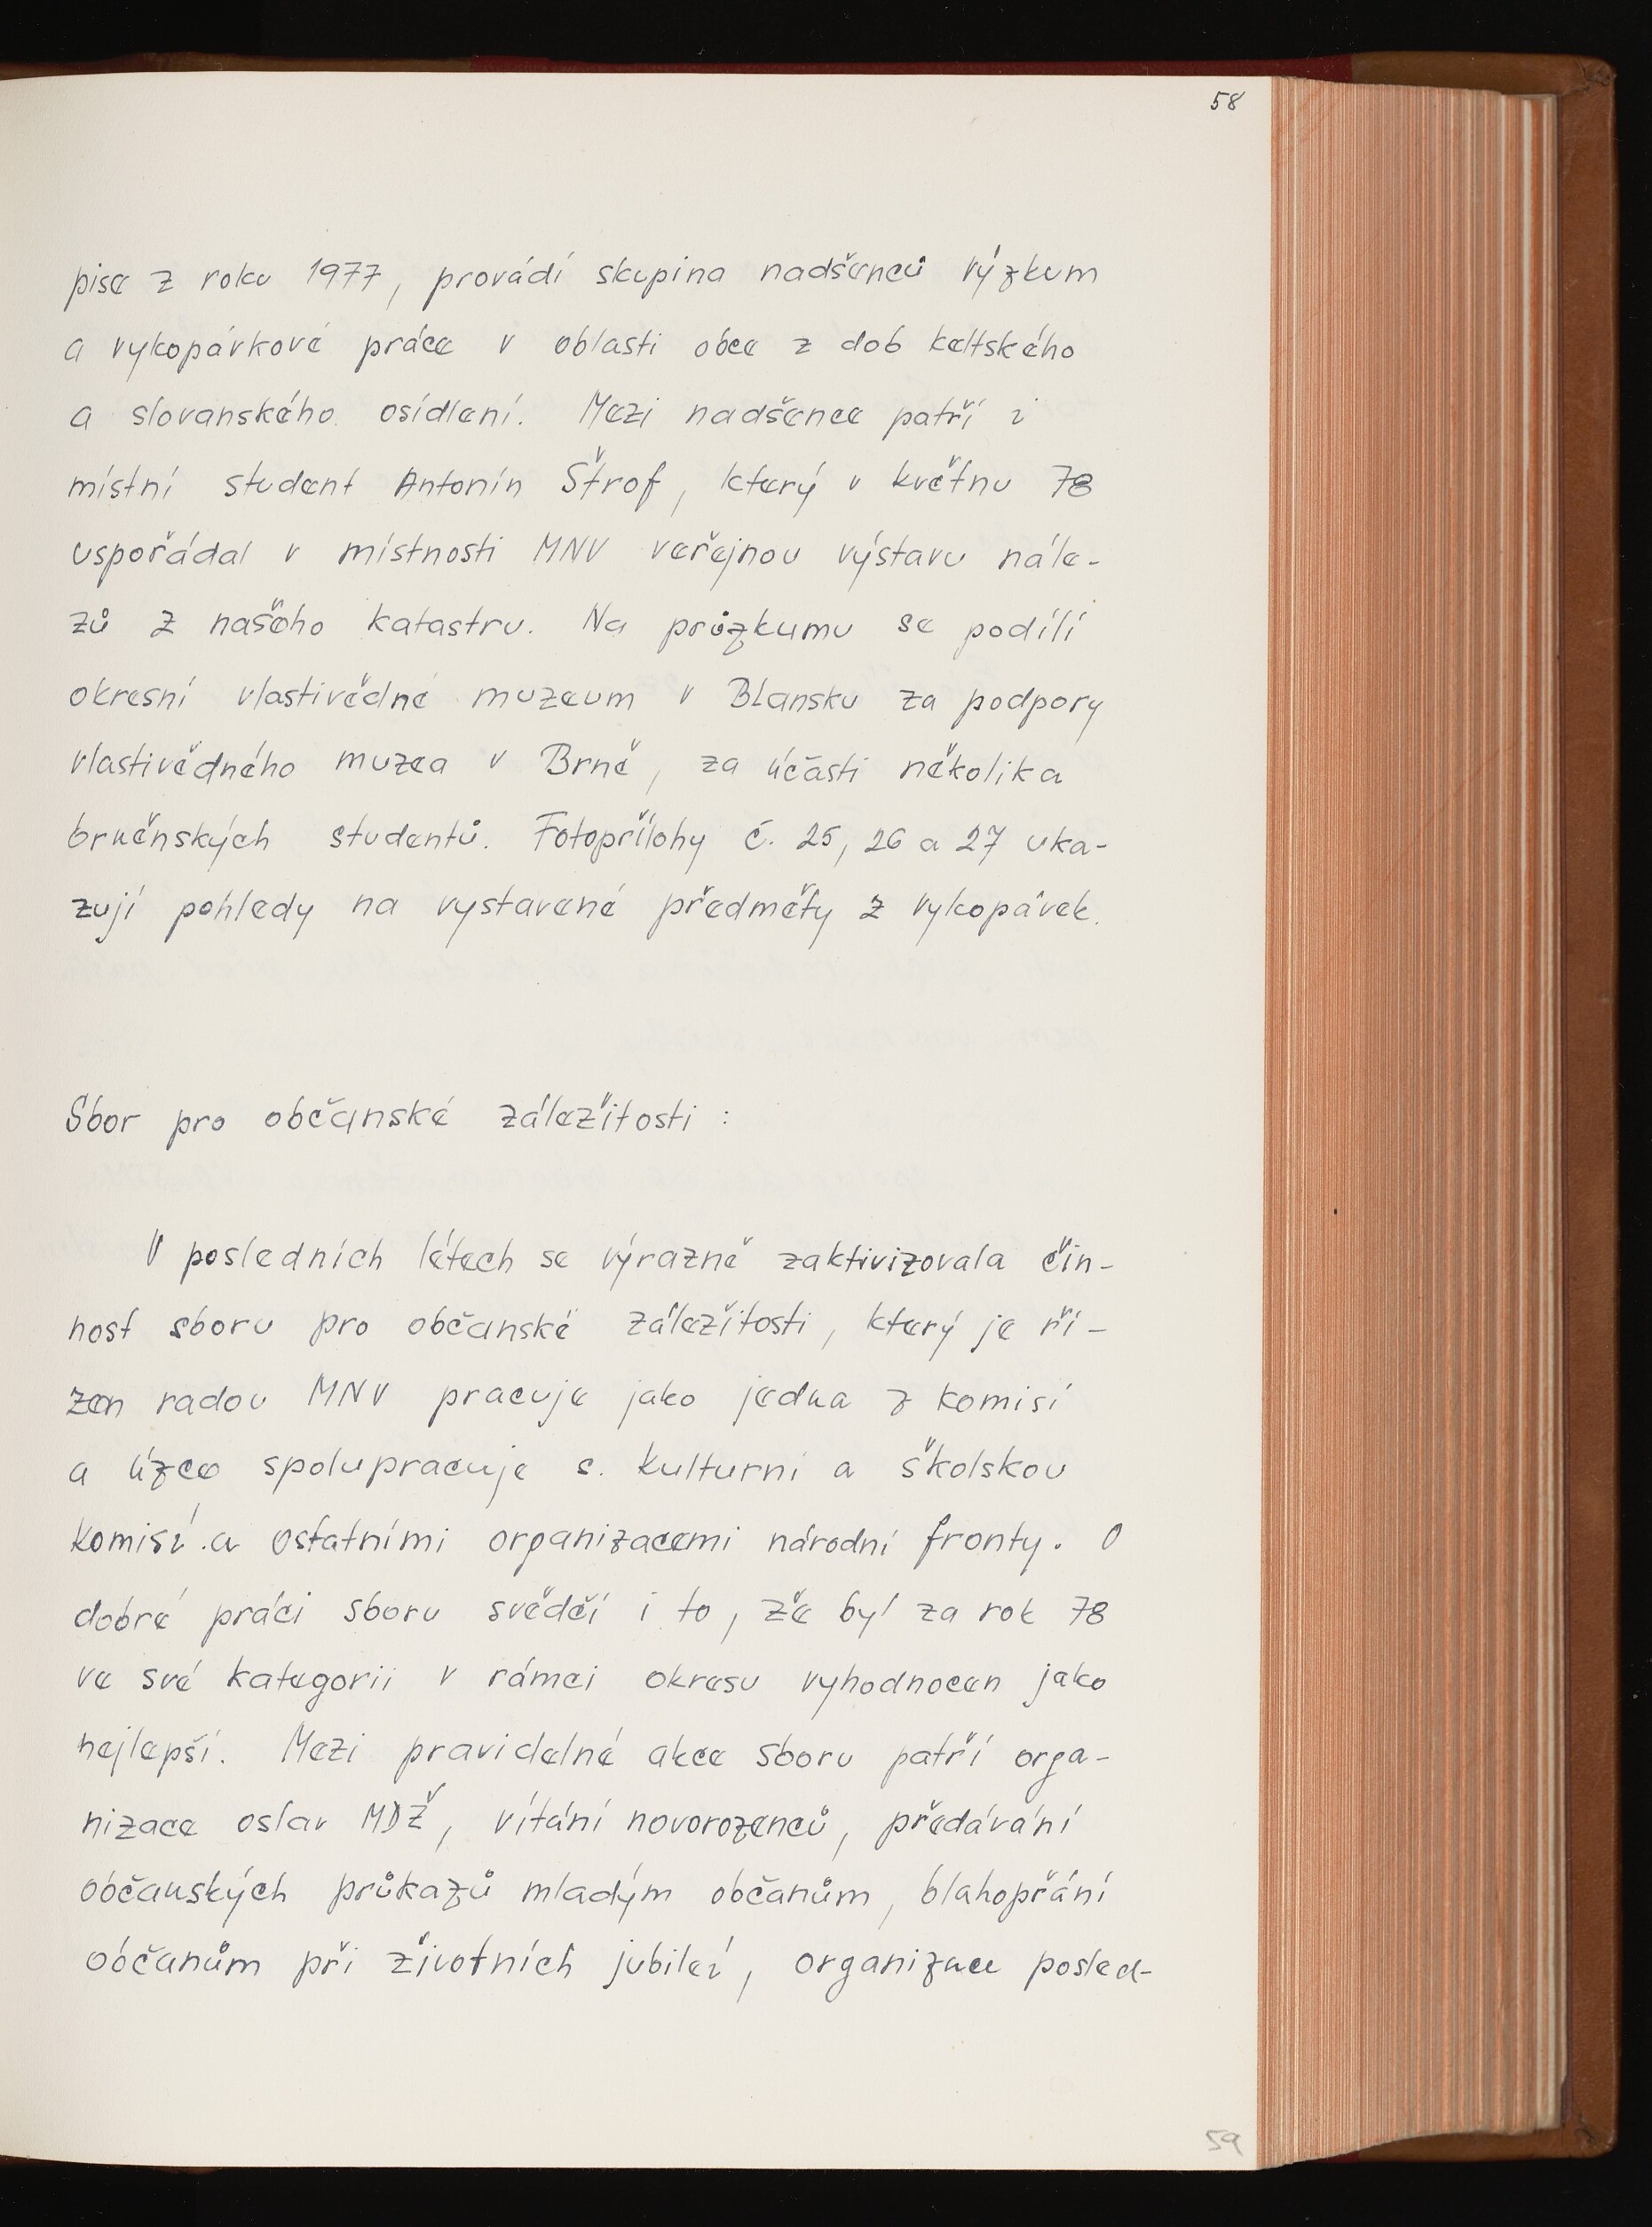 58
pise z roku 1977, provádí skupina nadšenců výzkum
a vykopávkové práce v oblasti obce z dob keltského
a slovanského osídlení. Mezi nadšence patří i
místní student Antonín Štrof, který v květnu 78
uspořádal v místnosti MNV veřejnou výstavu nále-
zů z našeho katastru. Na průzkumu se podílí
okresní vlastivědné muzeum v Blansku za podpory
vlastivědného muzea v Brně, za účasti několika
brněnských studentů. Fotopřílohy č. 25, 26 a 27 uka-
zují pohledy na vystavené předměty z vykopávek.
Sbor pro občanské záležitosti :
V posledních létech se výrazně zaktivizovala čin-
nost sboru pro občanské záležitosti, který je ří-
zen radou MNV pracuje jako jedna z komisí
a úzce spolupracuje s. kulturní a školskou
komisí a ostatními organizacemi národní fronty. O
dobré práci sboru svědčí i to, že byl za rok 78
ve své kategorii v rámci okresu vyhodnocen jako
nejlepší. Mezi pravidelné akce sboru patří orga-
nizace oslav MDŽ, vítání novorozenců, předávání
občanských průkazů mladým občanům, blahopřání
občanům při životních jubileí, organizace posled-
59